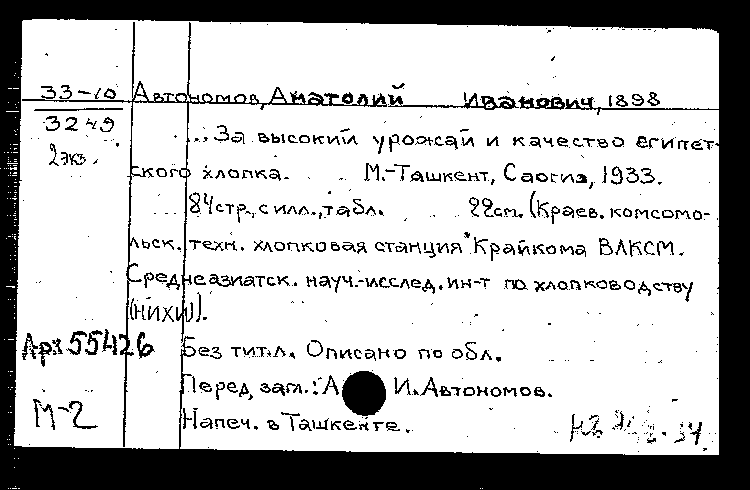 33-10 Автономов, Анатолий Иванович, 1898
3249
...За высокий урожай и качество египет-
2 экз.
ского хлопка. М.-Ташкент, Саогиз, 1933.
84 стр., с илл., табл. 22 см. (Краев. комсомо-
льск. техн. хлопковая станция Крайкома ВЛКСМ.
Среднеазиатск. науч.-исслед. ин-т по хлопководству
(НИХИ)).
Арх 55426 Без тит.л. Описано по обл.
Перед загл.: А И. Автономов.
М-2
Напеч. в Ташкенте.
34.